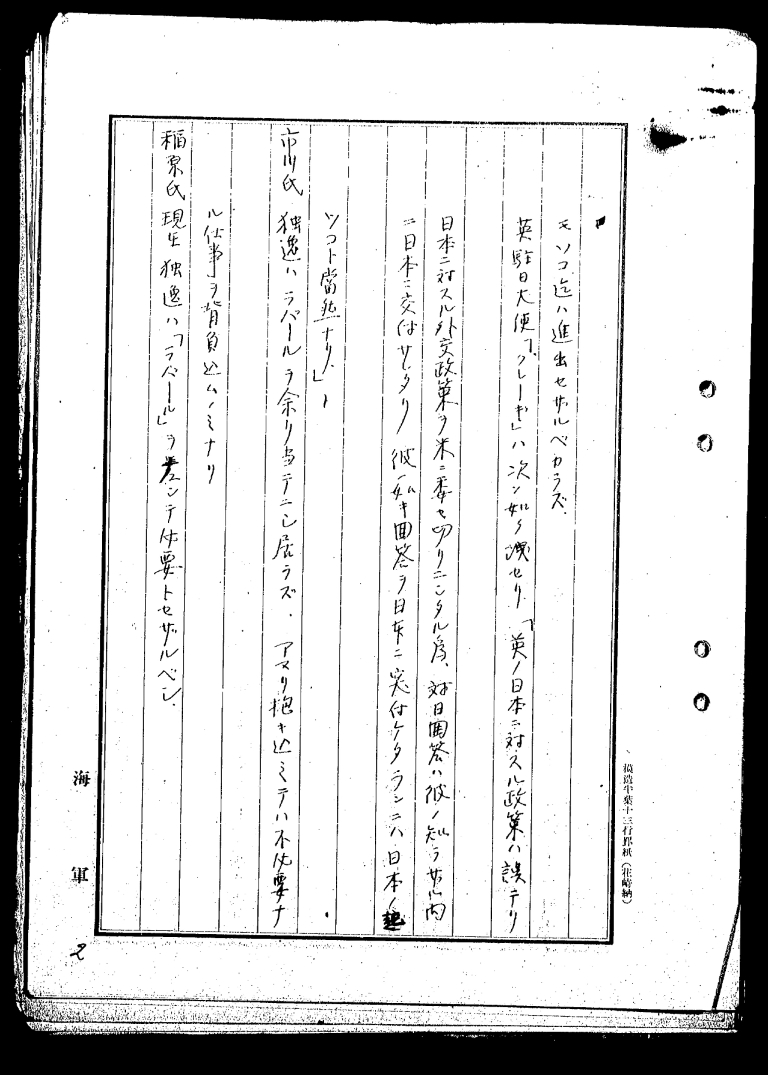 モソコ迄ハ進出セザルベカラズ.
英駐日大使「クレーギ」ハ次ノ如ク洩セリ.「英ノ日本ニ対スル政策ハ誤テリ
日本ニ対スル外交政策ヲ米ニ委セ切リニシタル為、対日回答ハ彼ノ知ラザル内
ニ日本ニ交付サレタリ 彼ノ如キ回答ヲ日本ニ突付ケタランニハ日本ノ起
ツコト當然ナリ.」
市川氏 独逸ハラバールヲ余リ当テニシ居ラズ. アマリ抱キ込ミテハ不必要ナ
ル仕事ヲ背負込ムノミナリ
稲原氏 現在独逸ハ「ラバール」ヲ シテ必要トセザルベシ.
海軍
2
模造半葉十三行罫紙(荘崎納)